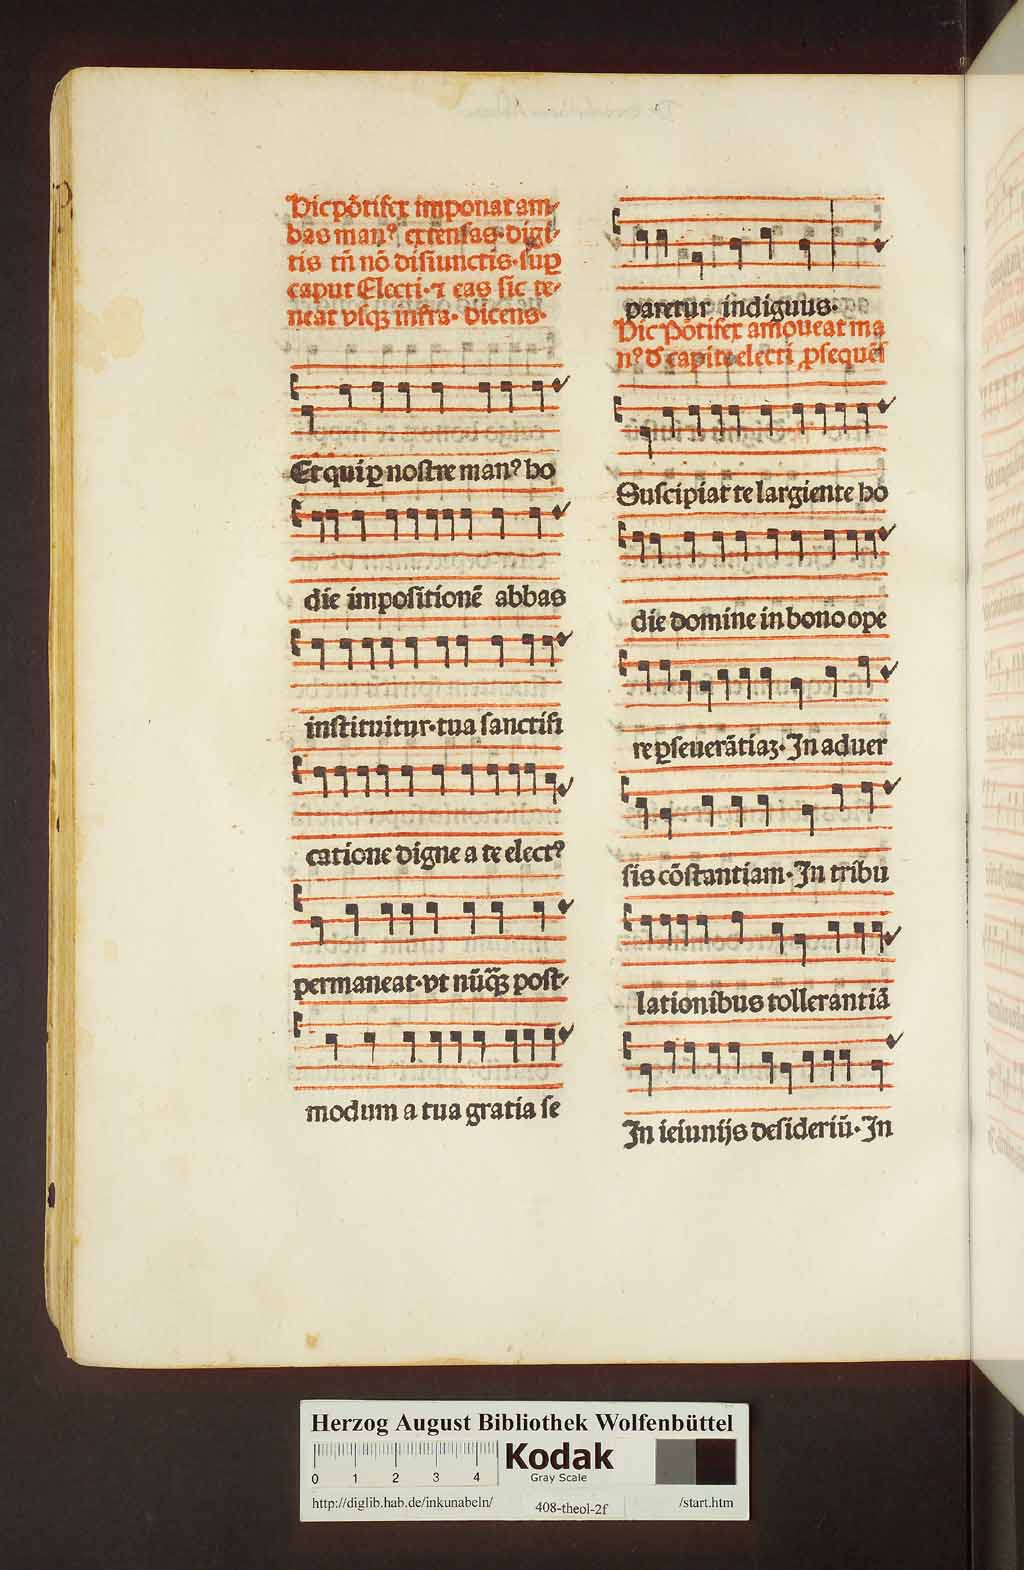 Hic põtifex imponat am-
bas manꝰ extensas·digi-
tis tñ nõ disiunctis·suꝑ
caput Electi·⁊ eas sic te-
neat vsqꝫ infra· dicens·
Et qui ꝑ nostre manꝰ ho
die impositionē abbas
instituitur·tua sanctifi
catione digne a te electꝰ
permaneat·vt nũq̃ꝫ post-
modum a tua gratia se
paretur indiguus·
Hic Põtifex amoueat ma
nꝰ d̕ capite electi ꝓsequēs
Suscipiat te largiente ho
die domine in bono ope
re ꝑseuerãtiaꝫ·In aduer
sis cõstantiam·In tribu
lationibus tollerantiã
In ieiunijs desideriũ·In
Herzog August Bibliothek Wolfenbüttel
0 1 2 3 4
Kodak
Gray Scale
http://diglib.hab.de/inkunabeln/ 408-theol-2f /start.htm